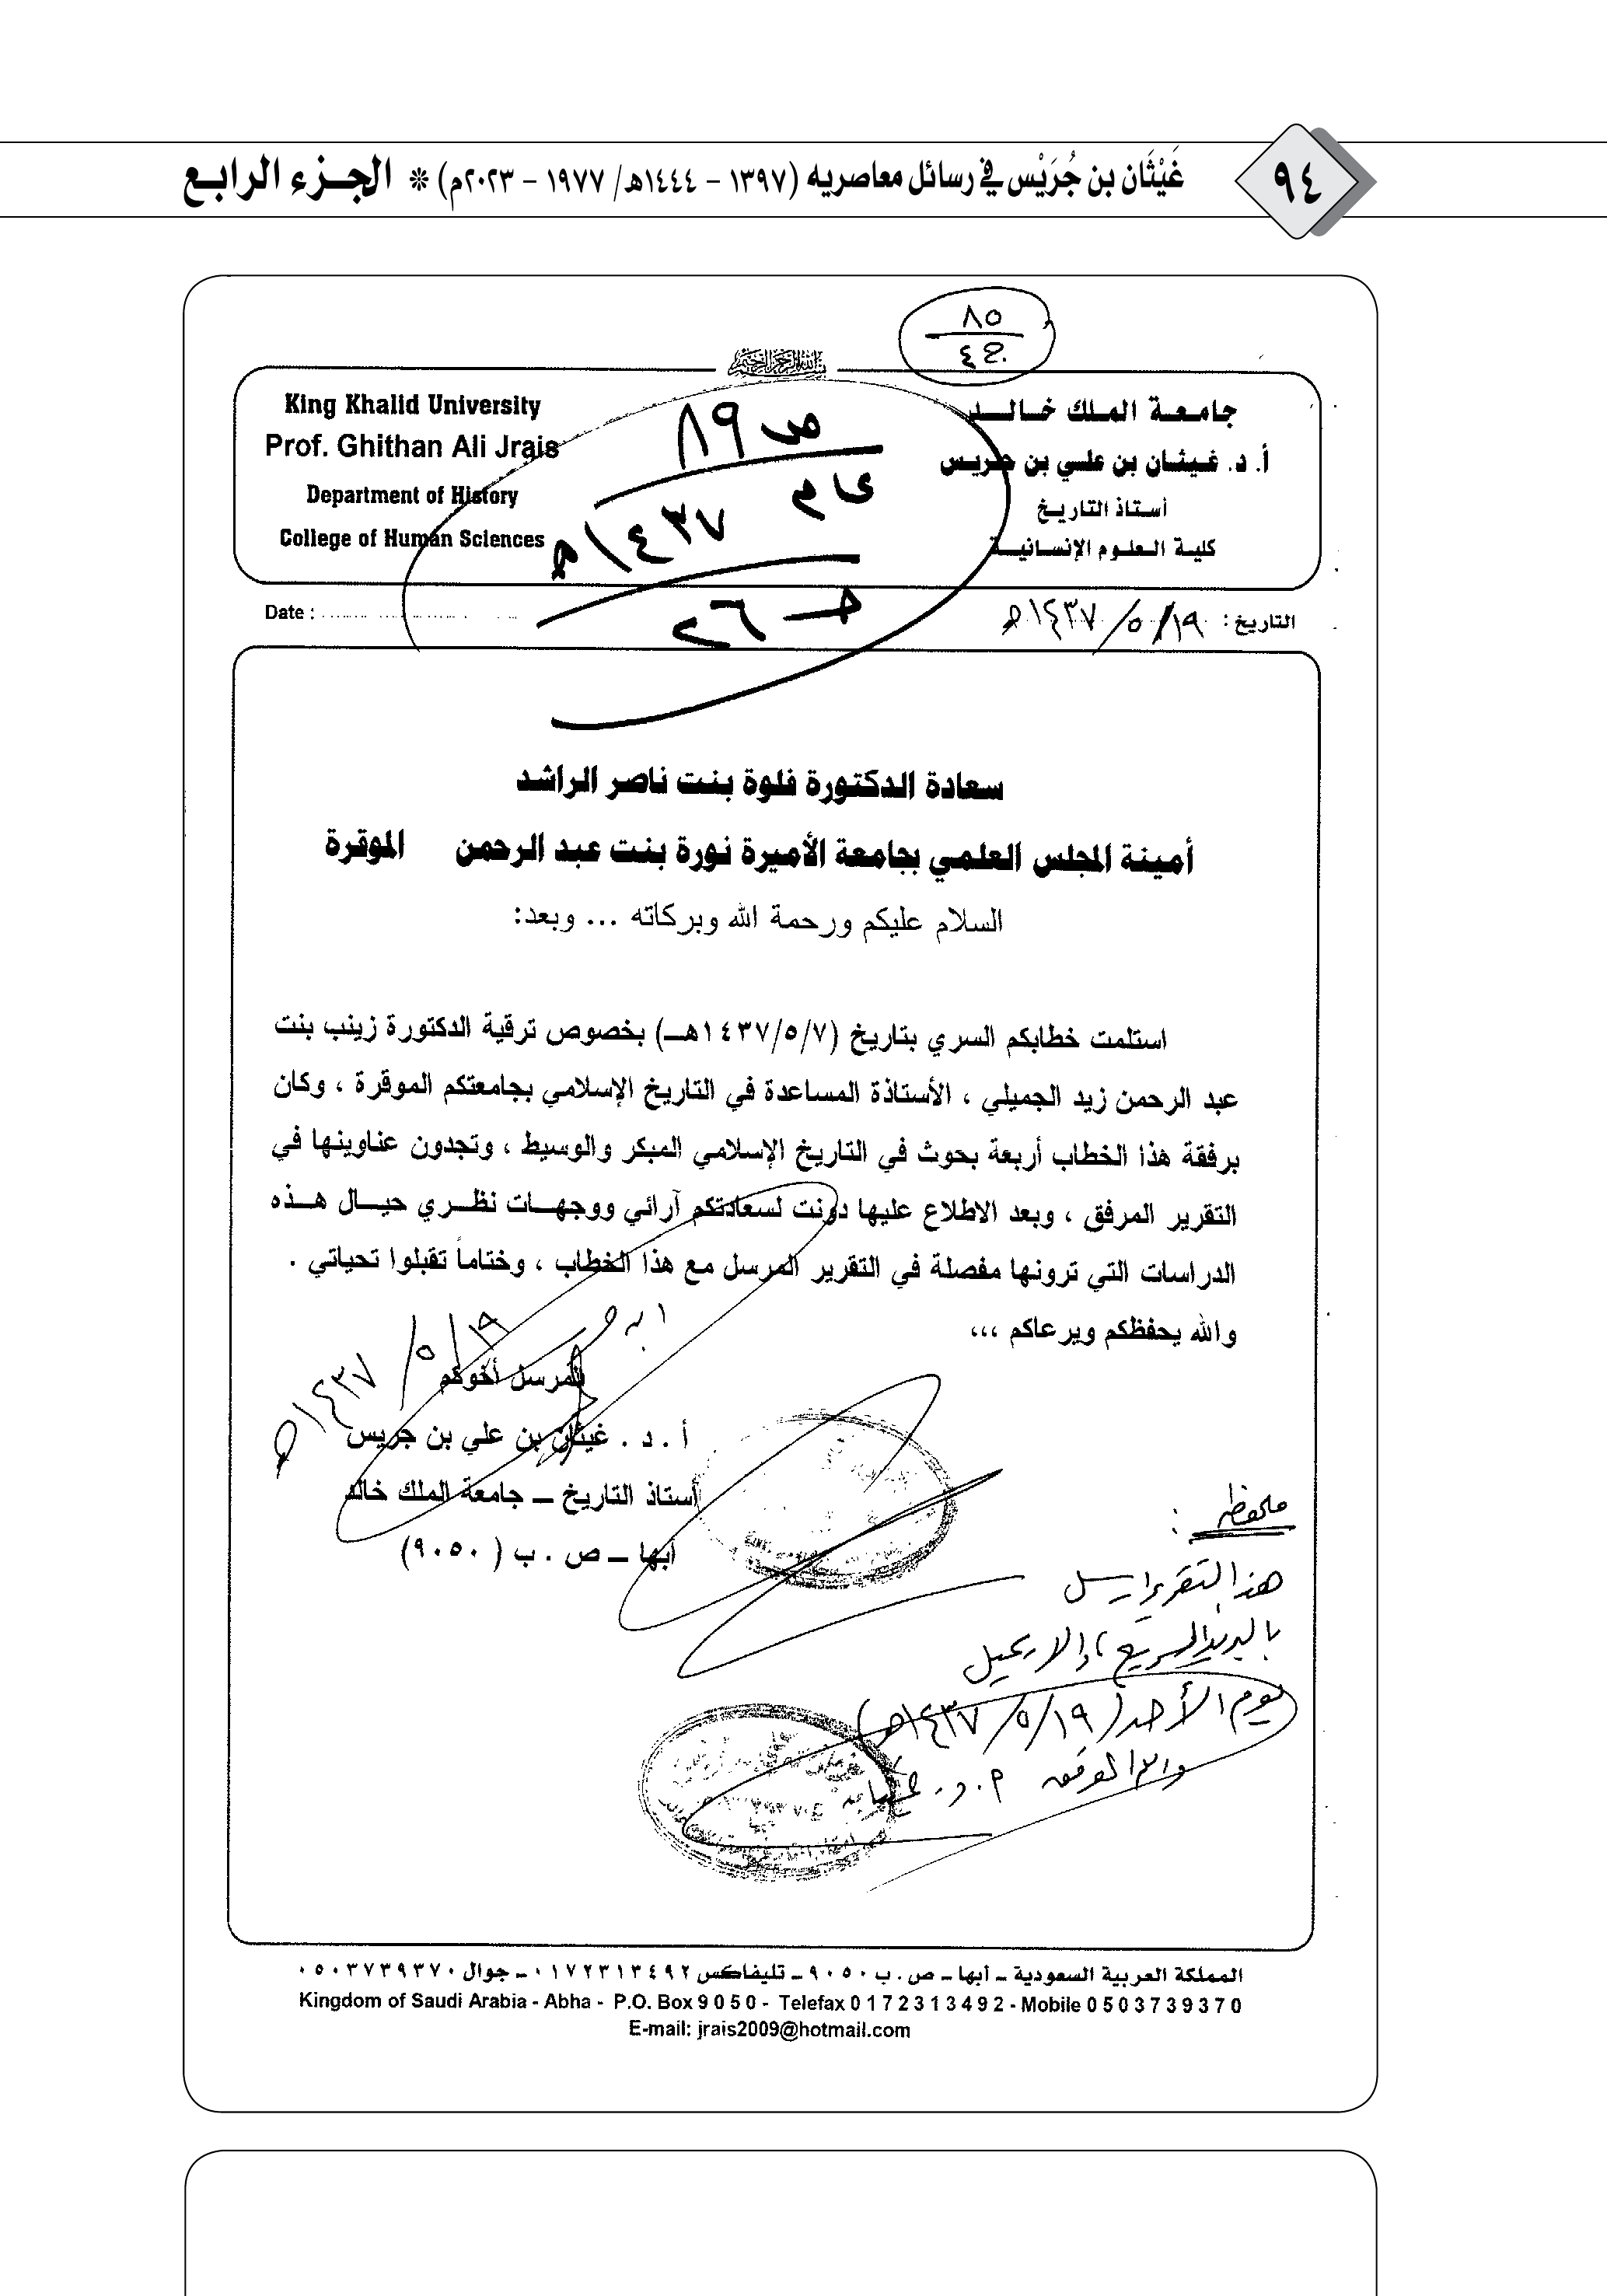 ٩٤
غَيْثَان بن جُرَيْس في رسائل معاصريه (١٣٩٧ - ١٤٤٤هـ/ ١٩٧٧ - ٢٠٢٣م) * الجزء الرابع
٨٥
بسم الله الرحمن الرحيم
جامعة الملك خالد
أ. د. غيثان بن علي بن جريس
أستاذ التاريخ
كلية العلوم الإنسانية
King Khalid University
Prof. Ghithan Ali Jrais
Department of History
College of Human Sciences
ص ٨٩
عام
١٤٣٧هـ
التاريخ : ١٩/ ٥/ ١٤٣٧هـ
Date :
سعادة الدكتورة فلوة بنت ناصر الراشد
أمينة المجلس العلمي بجامعة الأميرة نورة بنت عبد الرحمن الموقرة
السلام عليكم ورحمة الله وبركاته ... وبعد:
استلمت خطابكم السري بتاريخ (١٤٣٧/٥/٧هـ) بخصوص ترقية الدكتورة زينب بنت
عبد الرحمن زيد الجميلي ، الأستاذة المساعدة في التاريخ الإسلامي بجامعتكم الموقرة ، وكان
برفقة هذا الخطاب أربعة بحوث في التاريخ الإسلامي المبكر والوسيط ، وتجدون عناوينها في
التقرير المرفق ، وبعد الاطلاع عليها دونت لسعادتكم آرائي ووجهات نظري حيال هذه
الدراسات التي ترونها مفصلة في التقرير المرسل مع هذا الخطاب ، وختاماً تقبلوا تحياتي .
والله يحفظكم ويرعاكم ،،،
المرسل أخوكم
١٩/ ٥/ ١٤٣٧هـ
أ . د . غيثان بن علي بن جريس
أستاذ التاريخ ــ جامعة الملك خالد
أبها ــ ص . ب ( ٩٠٥٠)
ملحوظة :
هذا التقرير أرسل
بالبريد السريع ، والإيميل
يوم الأحد (١٩/ ٥/ ١٤٣٧هـ)
والله الموفق
المملكة العربية السعودية ــ أبها ــ ص . ب ٩٠٥٠ ــ تليفاكس ٠١٧٢٣١٣٤٩٢ ــ جوال ٠٥٠٣٧٣٩٣٧٠
Kingdom of Saudi Arabia - Abha - P.O. Box 9050 - Telefax 0172313492 - Mobile 0503739370
E-mail: jrais2009@hotmail.com